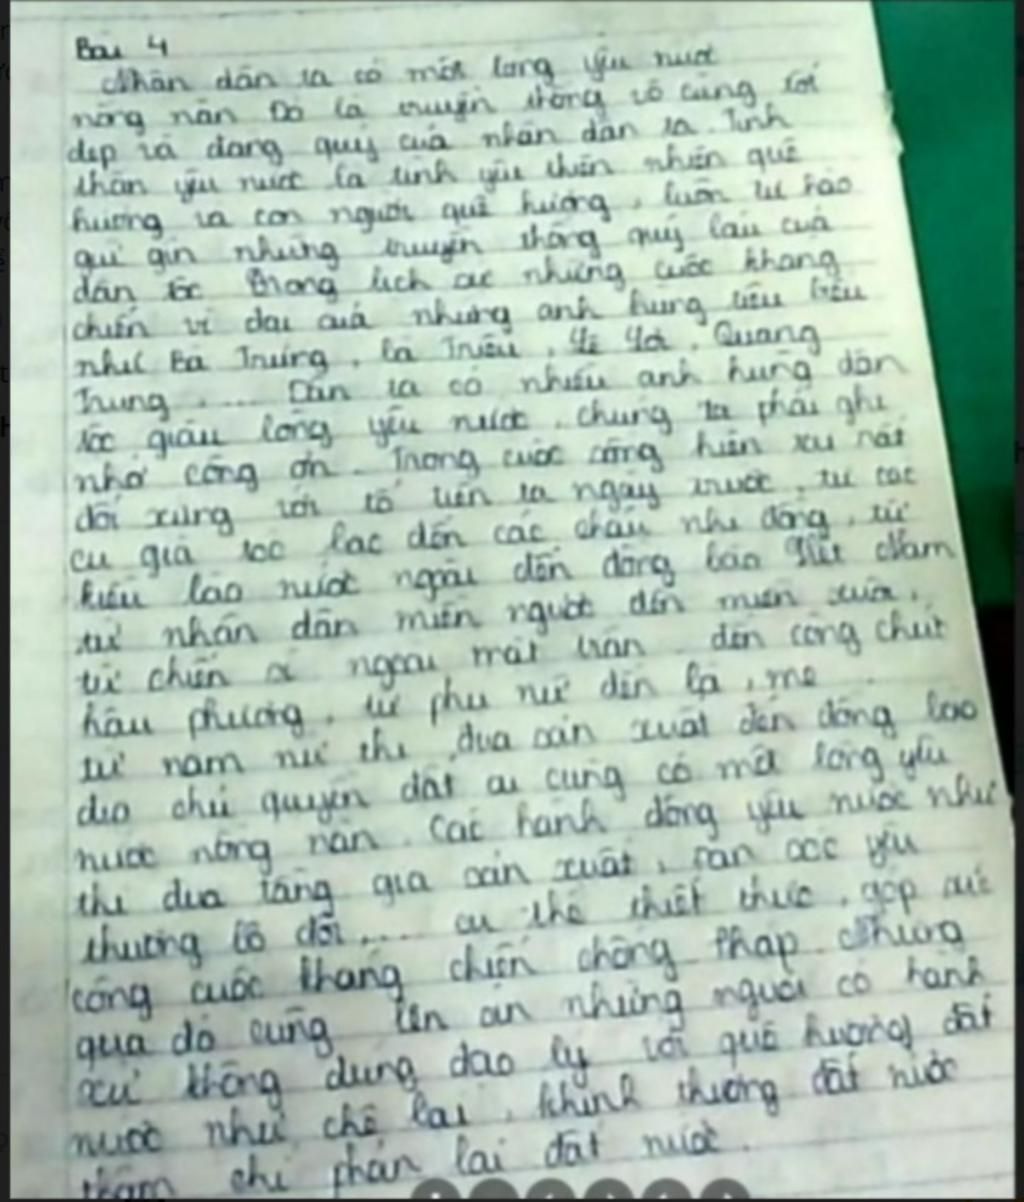 Bài 4
Nhân dân ta có một lòng yêu nước
nồng nàn Đó là truyền thống vô cùng tốt
đẹp và đáng quý của nhân dân ta. Tinh
thần yêu nước là tình yêu thiên nhiên quê
hương và con người quê hương, luôn tự hào
giữ gìn những truyền thống quý báu của
dân tộc Trong lịch sử những cuộc kháng
chiến vĩ đại của những anh hùng tiêu biểu
như Bà Trưng, Bà Triệu, Lê Lợi, Quang
Trung, .... Dân ta có nhiều anh hùng dân
tộc giàu lòng yêu nước, chúng ta phải ghi
nhớ công ơn. Trong cuộc sống hiện
đối xứng với tổ tiên ta ngày trước, từ các
cụ già tóc bạc đến các cháu nhi đồng, từ
kiều bào nước ngoài đến đồng bào Việt Nam
từ nhân dân miền ngược đến miền xuôi,
từ chiến sĩ ngoài mặt trận đến công chức
hậu phương, từ phụ nữ đến bà, mẹ
từ nam nữ thi đua sản xuất đến đồng bào
chủ quyền đất ai cũng có một lòng yêu
nước nồng nàn. Các hành động yêu nước như
thi đua tăng gia sản xuất, săn sóc yêu
thương bộ đội, .... cụ thể thiết thực, góp sức
công cuộc kháng chiến chống Pháp Nhưng
qua đó cũng lên án những người có hành
xử không đúng đạo lý với quê hương đất
nước như chê bai, khinh thường đất nước
thậm chí phản lại đất nước.